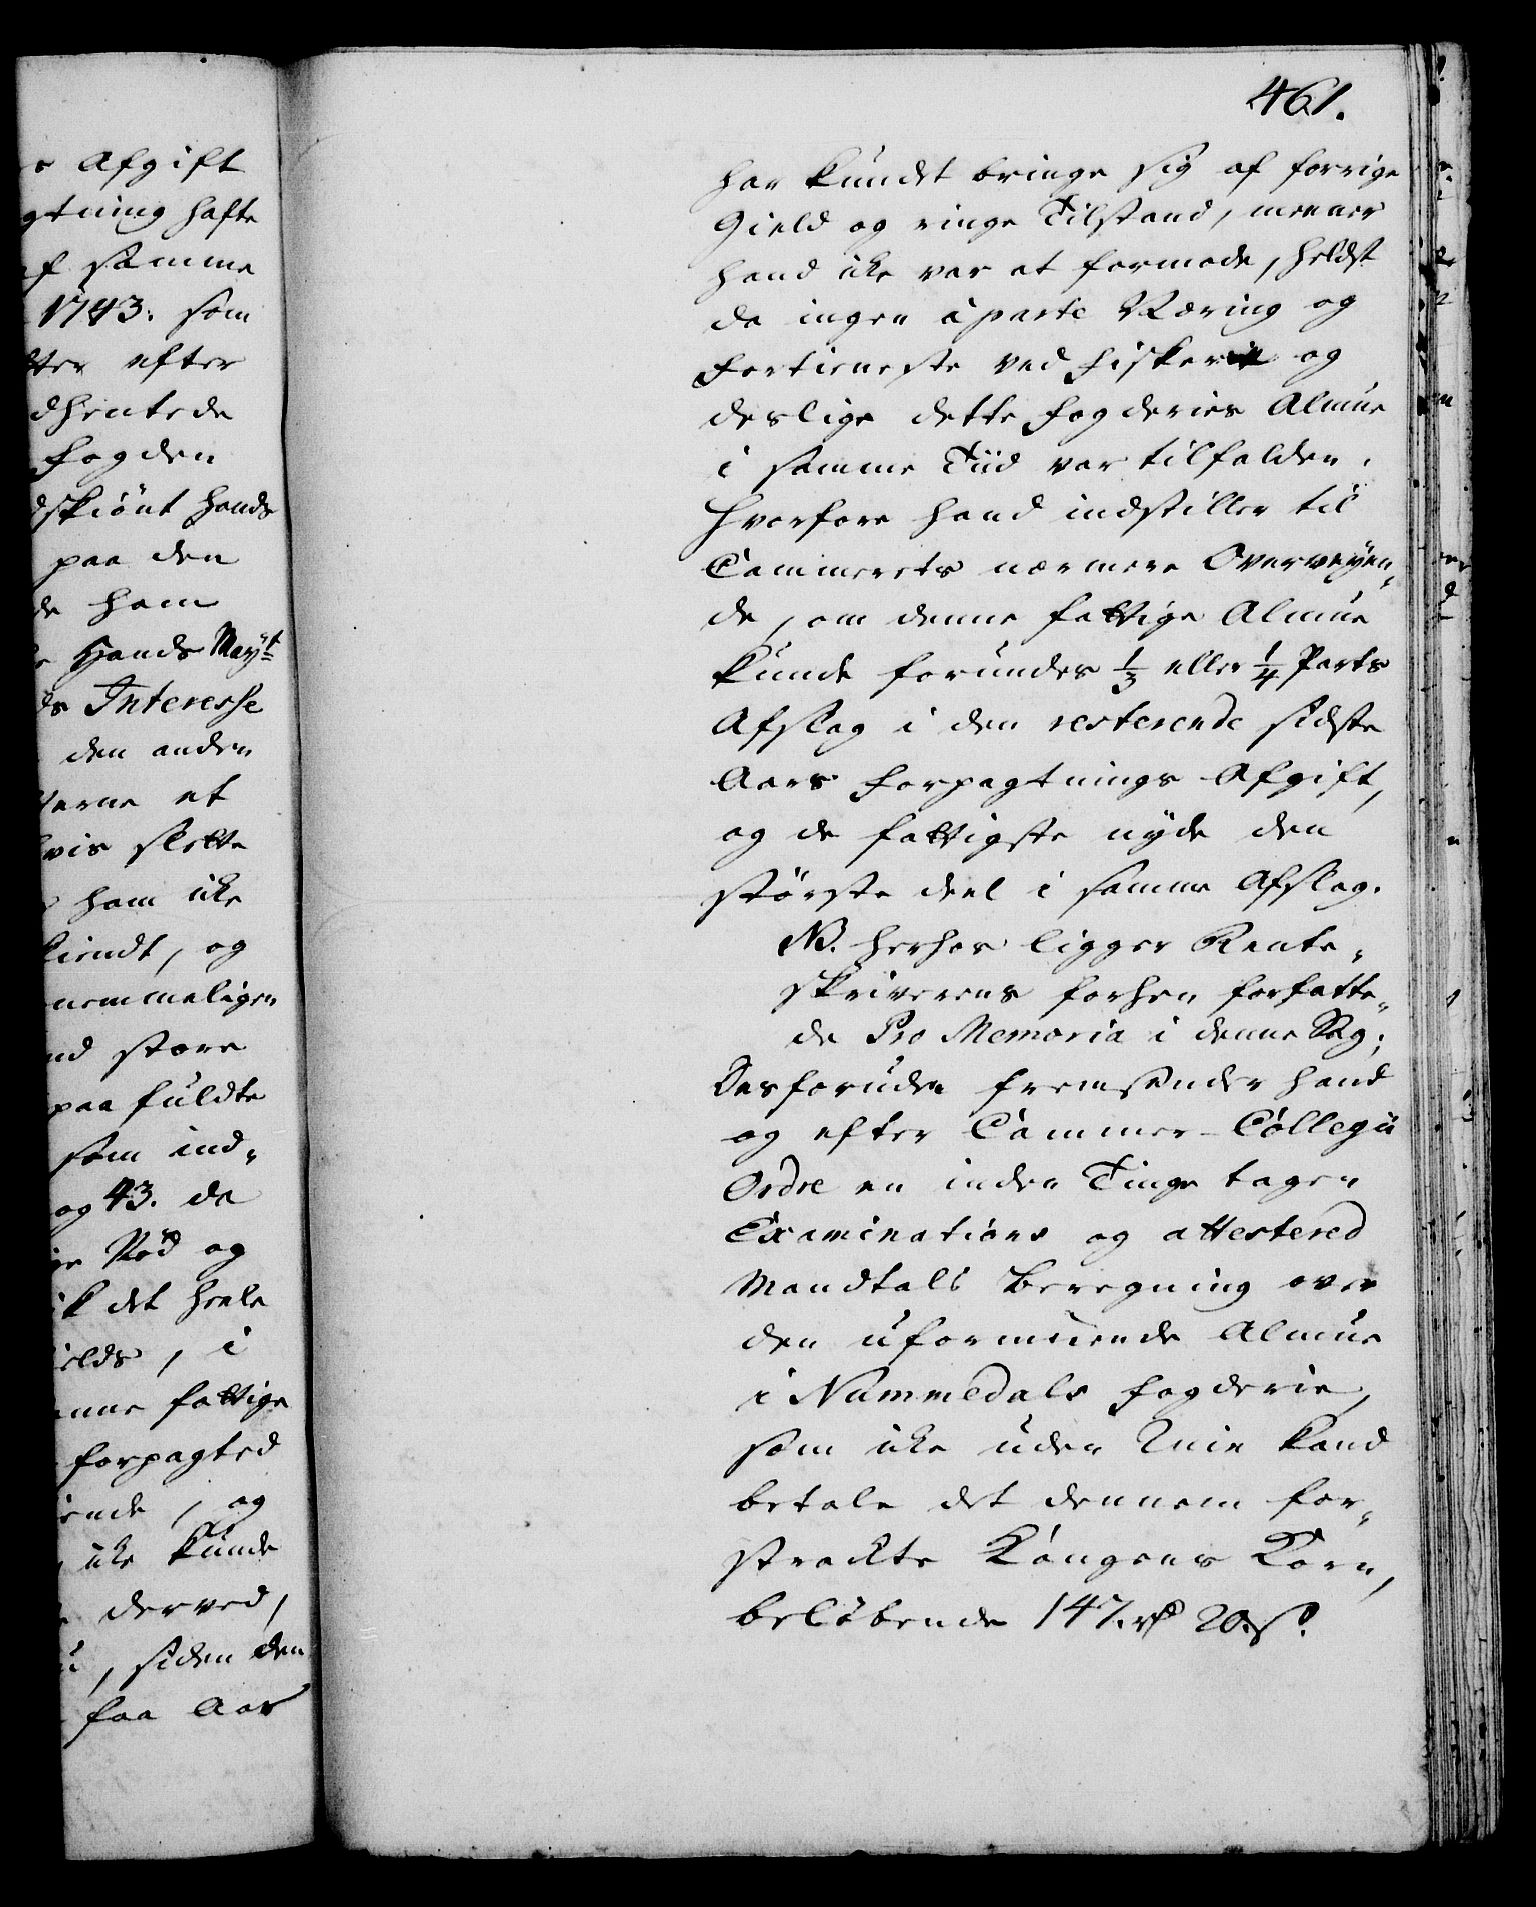 r Afgift
gtning hafte
f samme
1743. som
tter efter
dhentede
Fogden
dskiönt hands
paa den
de ham
Hands Mayt
ds Interesse
den anden
terne et
vis slette
ham ike
tiendt, og
nemmeligen
nd store
paa fuldte
som ind„
og 43. da
Nød og
ik det heele
ields, i
nne fattige
forpagted
ende, og
ike kunde
derved,
, siden den
faa Aar
461.
har kundet bringe sig af forrige
Gield og ringe Tilstand, meener
hand ike var at formode, heldst
da ingen àparte Næring og
Fortieneste ved Fiskerie og
deslige dette Fogderies Almue
i samme Tiid var tilfalden.
Hvorfore hand indstiller til
Cammerets nærmere Overveyen„
de, om denne fattige Almue
kunde forundes 1/3 eller 1/4 Parts
Afslag i den resterende sidste
Aars Forpagtnings Afgift,
og de fattigste nyde den
største deel i samme Afslag.
NB. herhos ligger Rente„
skriverens forhen forfatte„
de Pro Memoria i denne Sag;
Desforuden fremsender hand
og efter Cammer-Collegii
Ordre en inden Tinge tagen
Examinations og attestered
Mandtals Beregning over
den uformuende Almue
i Nummedals Fogderie,
som ike uden Ruin kand
betale det dennem for„
strackte Kongens Korn,
beløbende 147. rd 20. s.